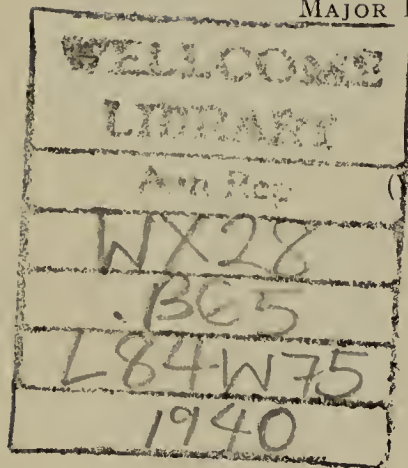 MAJOR
WELLCOME
LIBRARY
Ann Rep
WX28
.BE5
L84W75
1940